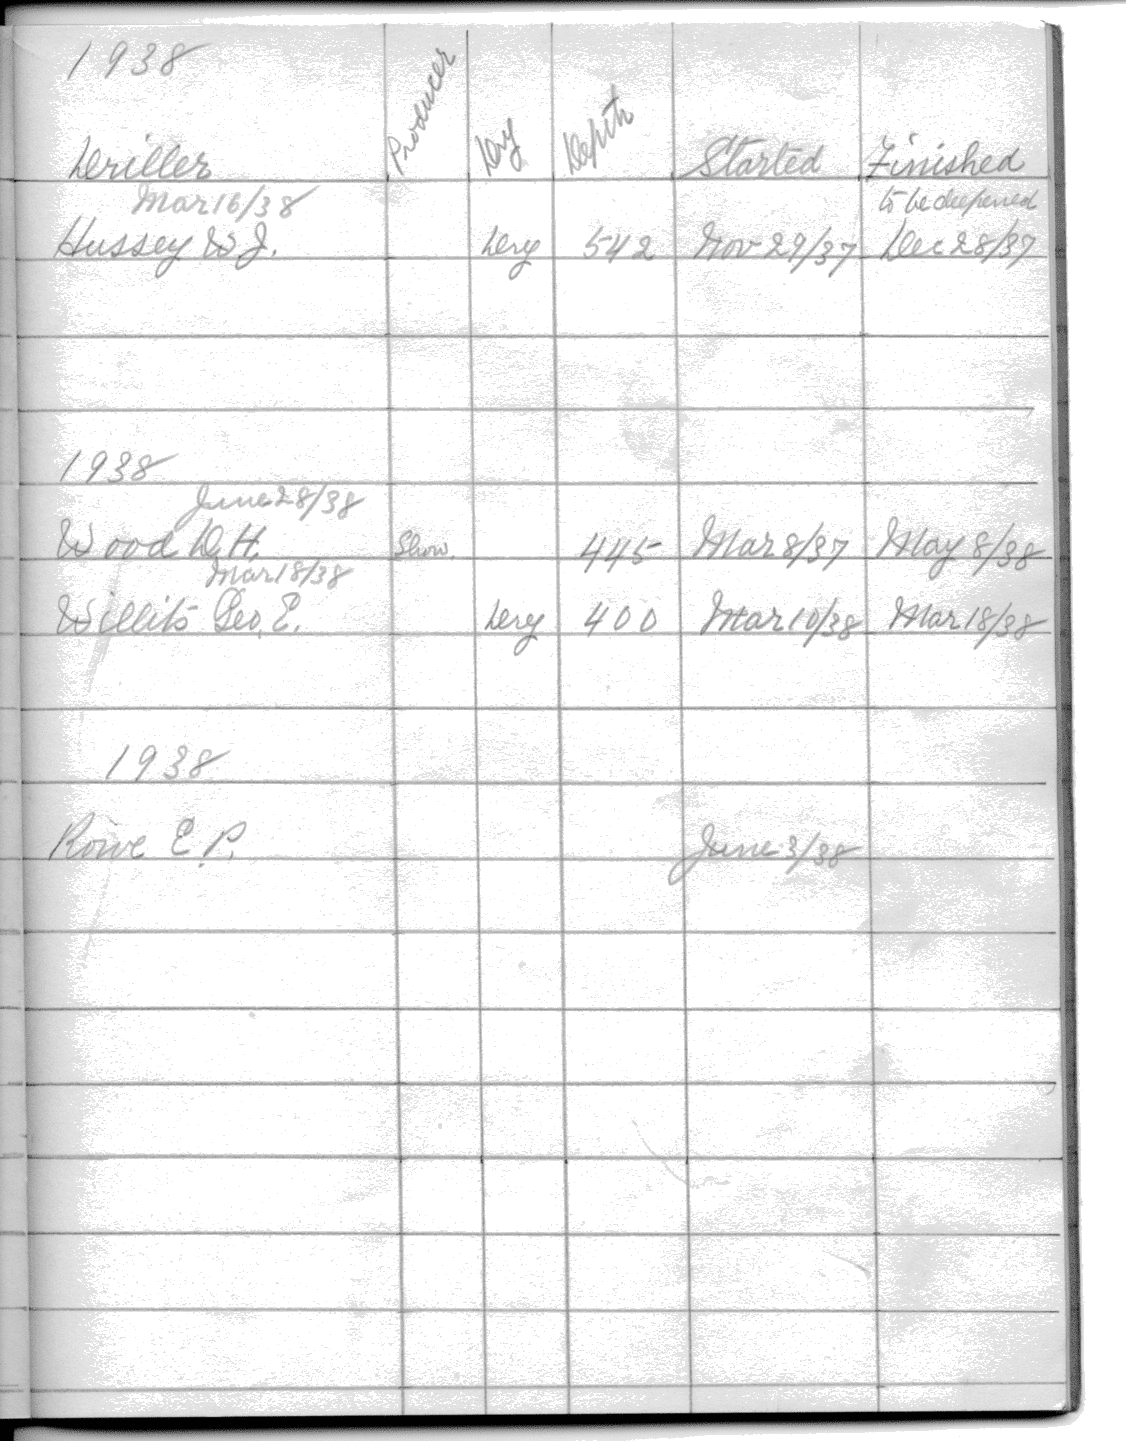 1938
Driller Producer Dry Depth Started Finished
Mar 16/38 to be deepened
Hussey W J. Dry 542 Nov 29/37 Dec 28/37
1938
June 28/38
Wood D. H. Show. 445 Mar 8/37 May 8/38
Mar 18/38
Willits Geo. E. Dry 400 Mar 10/38 Mar 18/38
1938
Rowe E. P. June 3/38